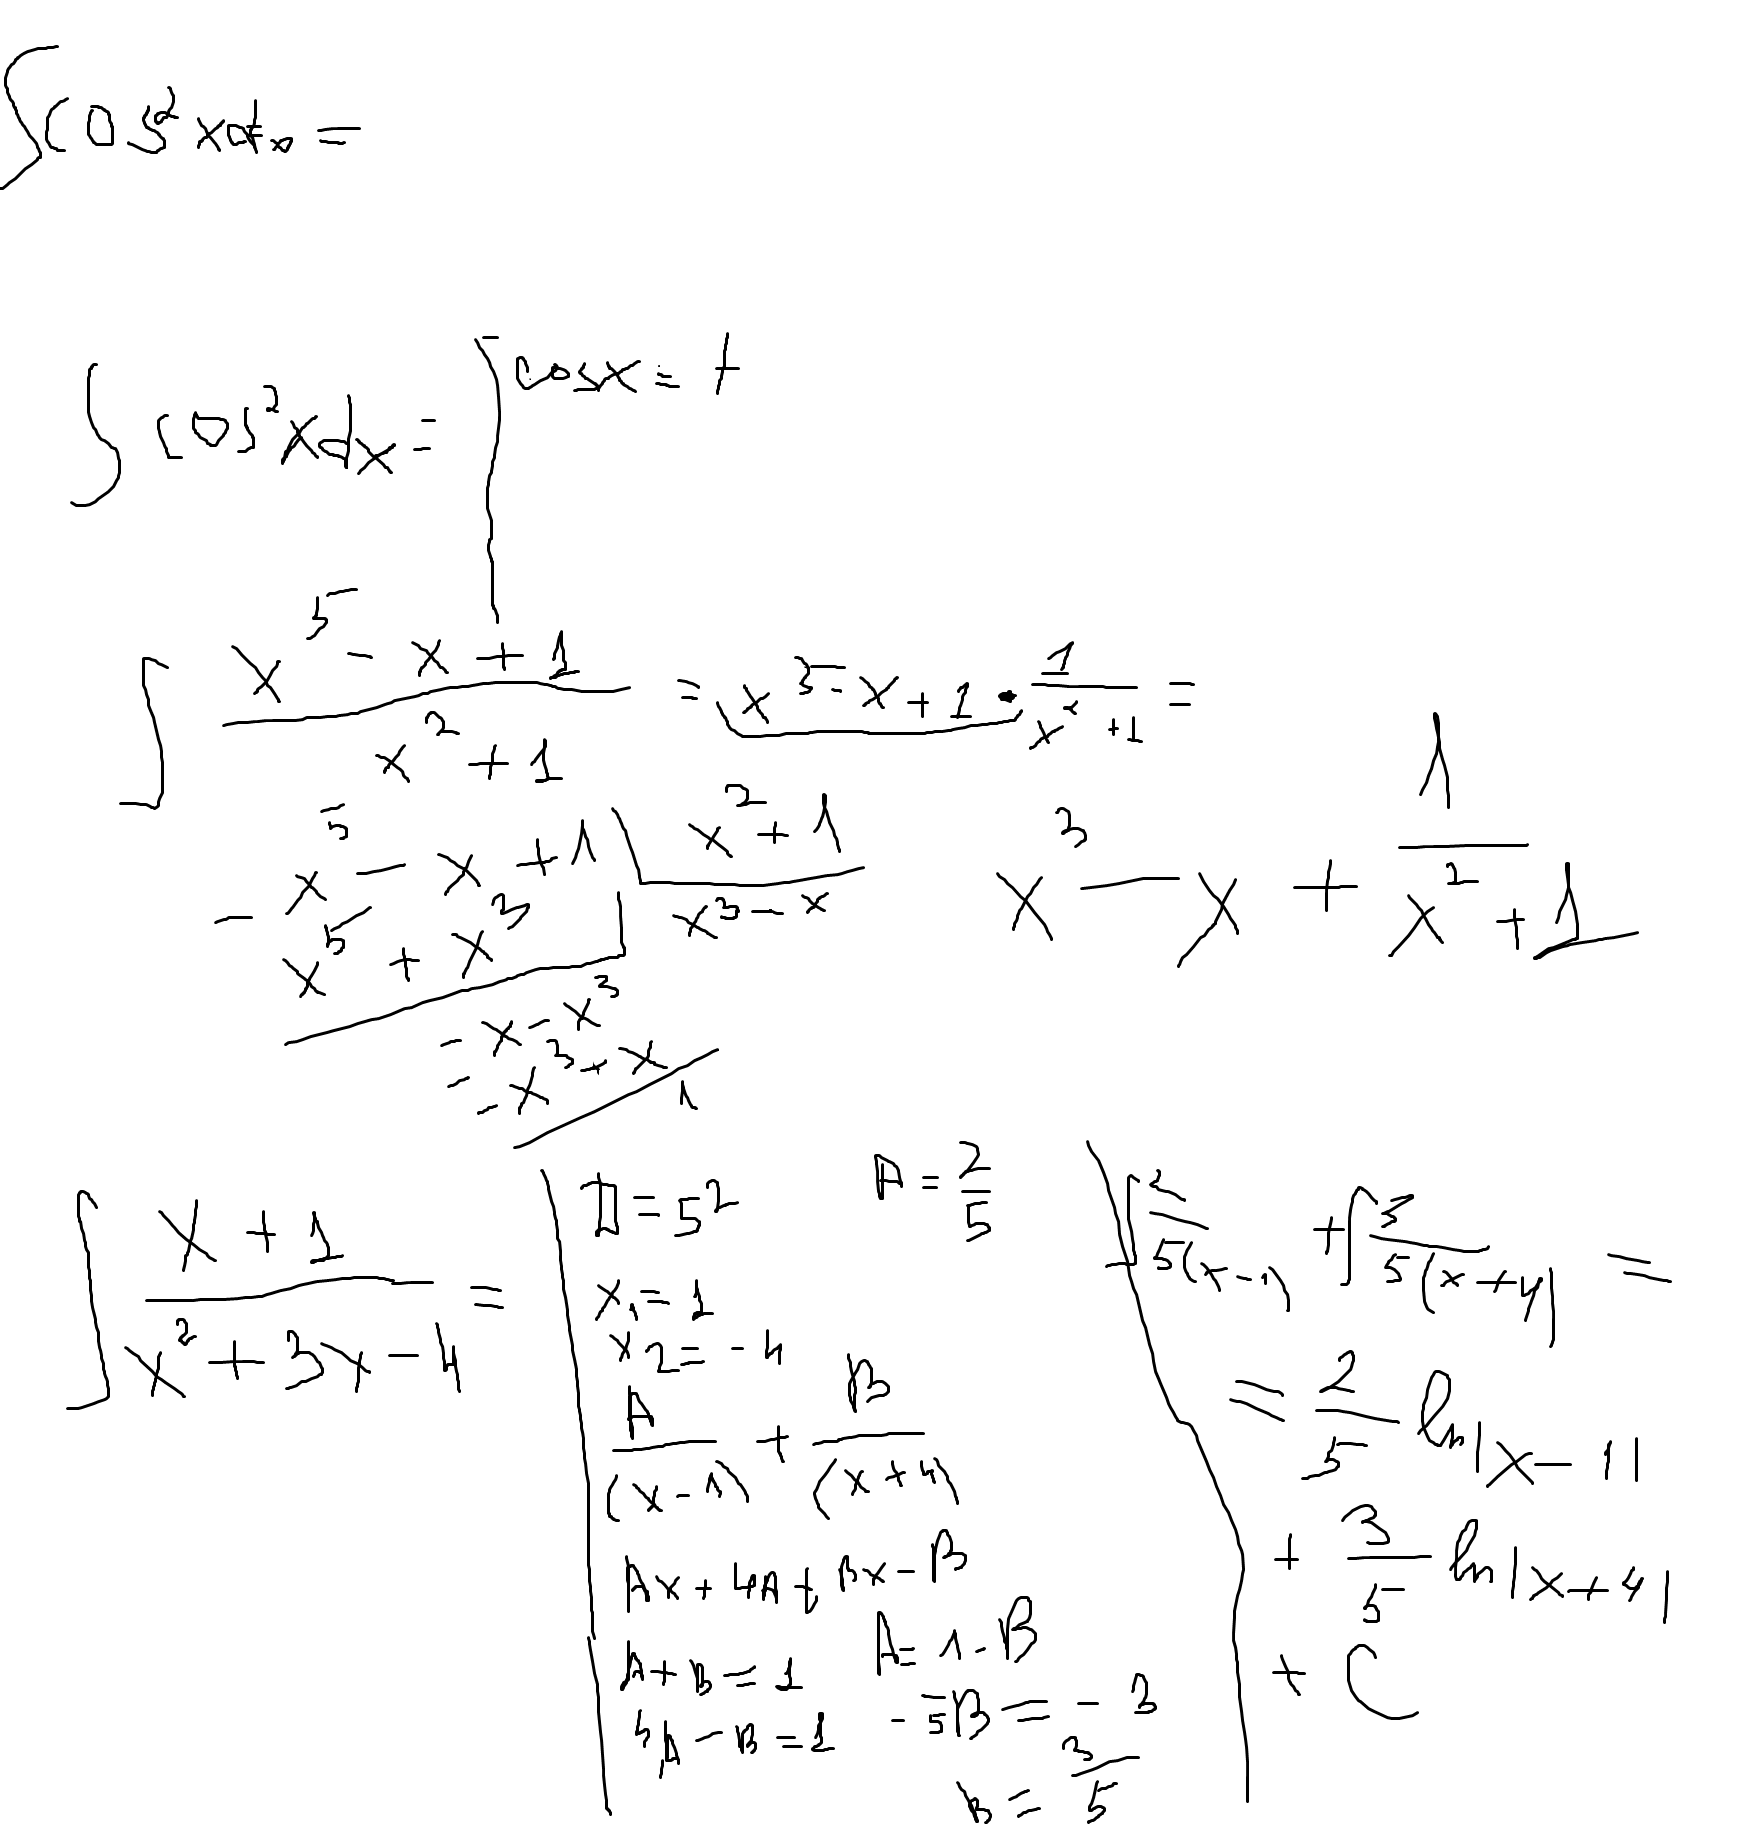 ∫cos²xdx =
∫ cos²xdx = | cosx = t
∫ (x⁵ - x + 1)/(x² + 1) = x⁵ - x + 1 · 1/(x² + 1) =
- x⁵ - x + 1 | x² + 1
x⁵ + x³ | x³ - x
x³ - x + 1/(x² + 1)
- x - x³
- - x³ - x
1
∫ (x + 1)/(x² + 3x - 4) =
D = 5²
x₁ = 1
x2 = - 4
A/(x - 1) + B/(x + 4)
Ax + 4A + Bx - B
A + B = 1
4A - B = 1
A = 1 - B
- 5B = - 3
B = 3/5
A = 2/5
∫ 2/5(x - 1) + ∫ 3/5(x + 4) =
= 2/5 ln|x - 1|
+ 3/5 ln|x + 4|
+ C